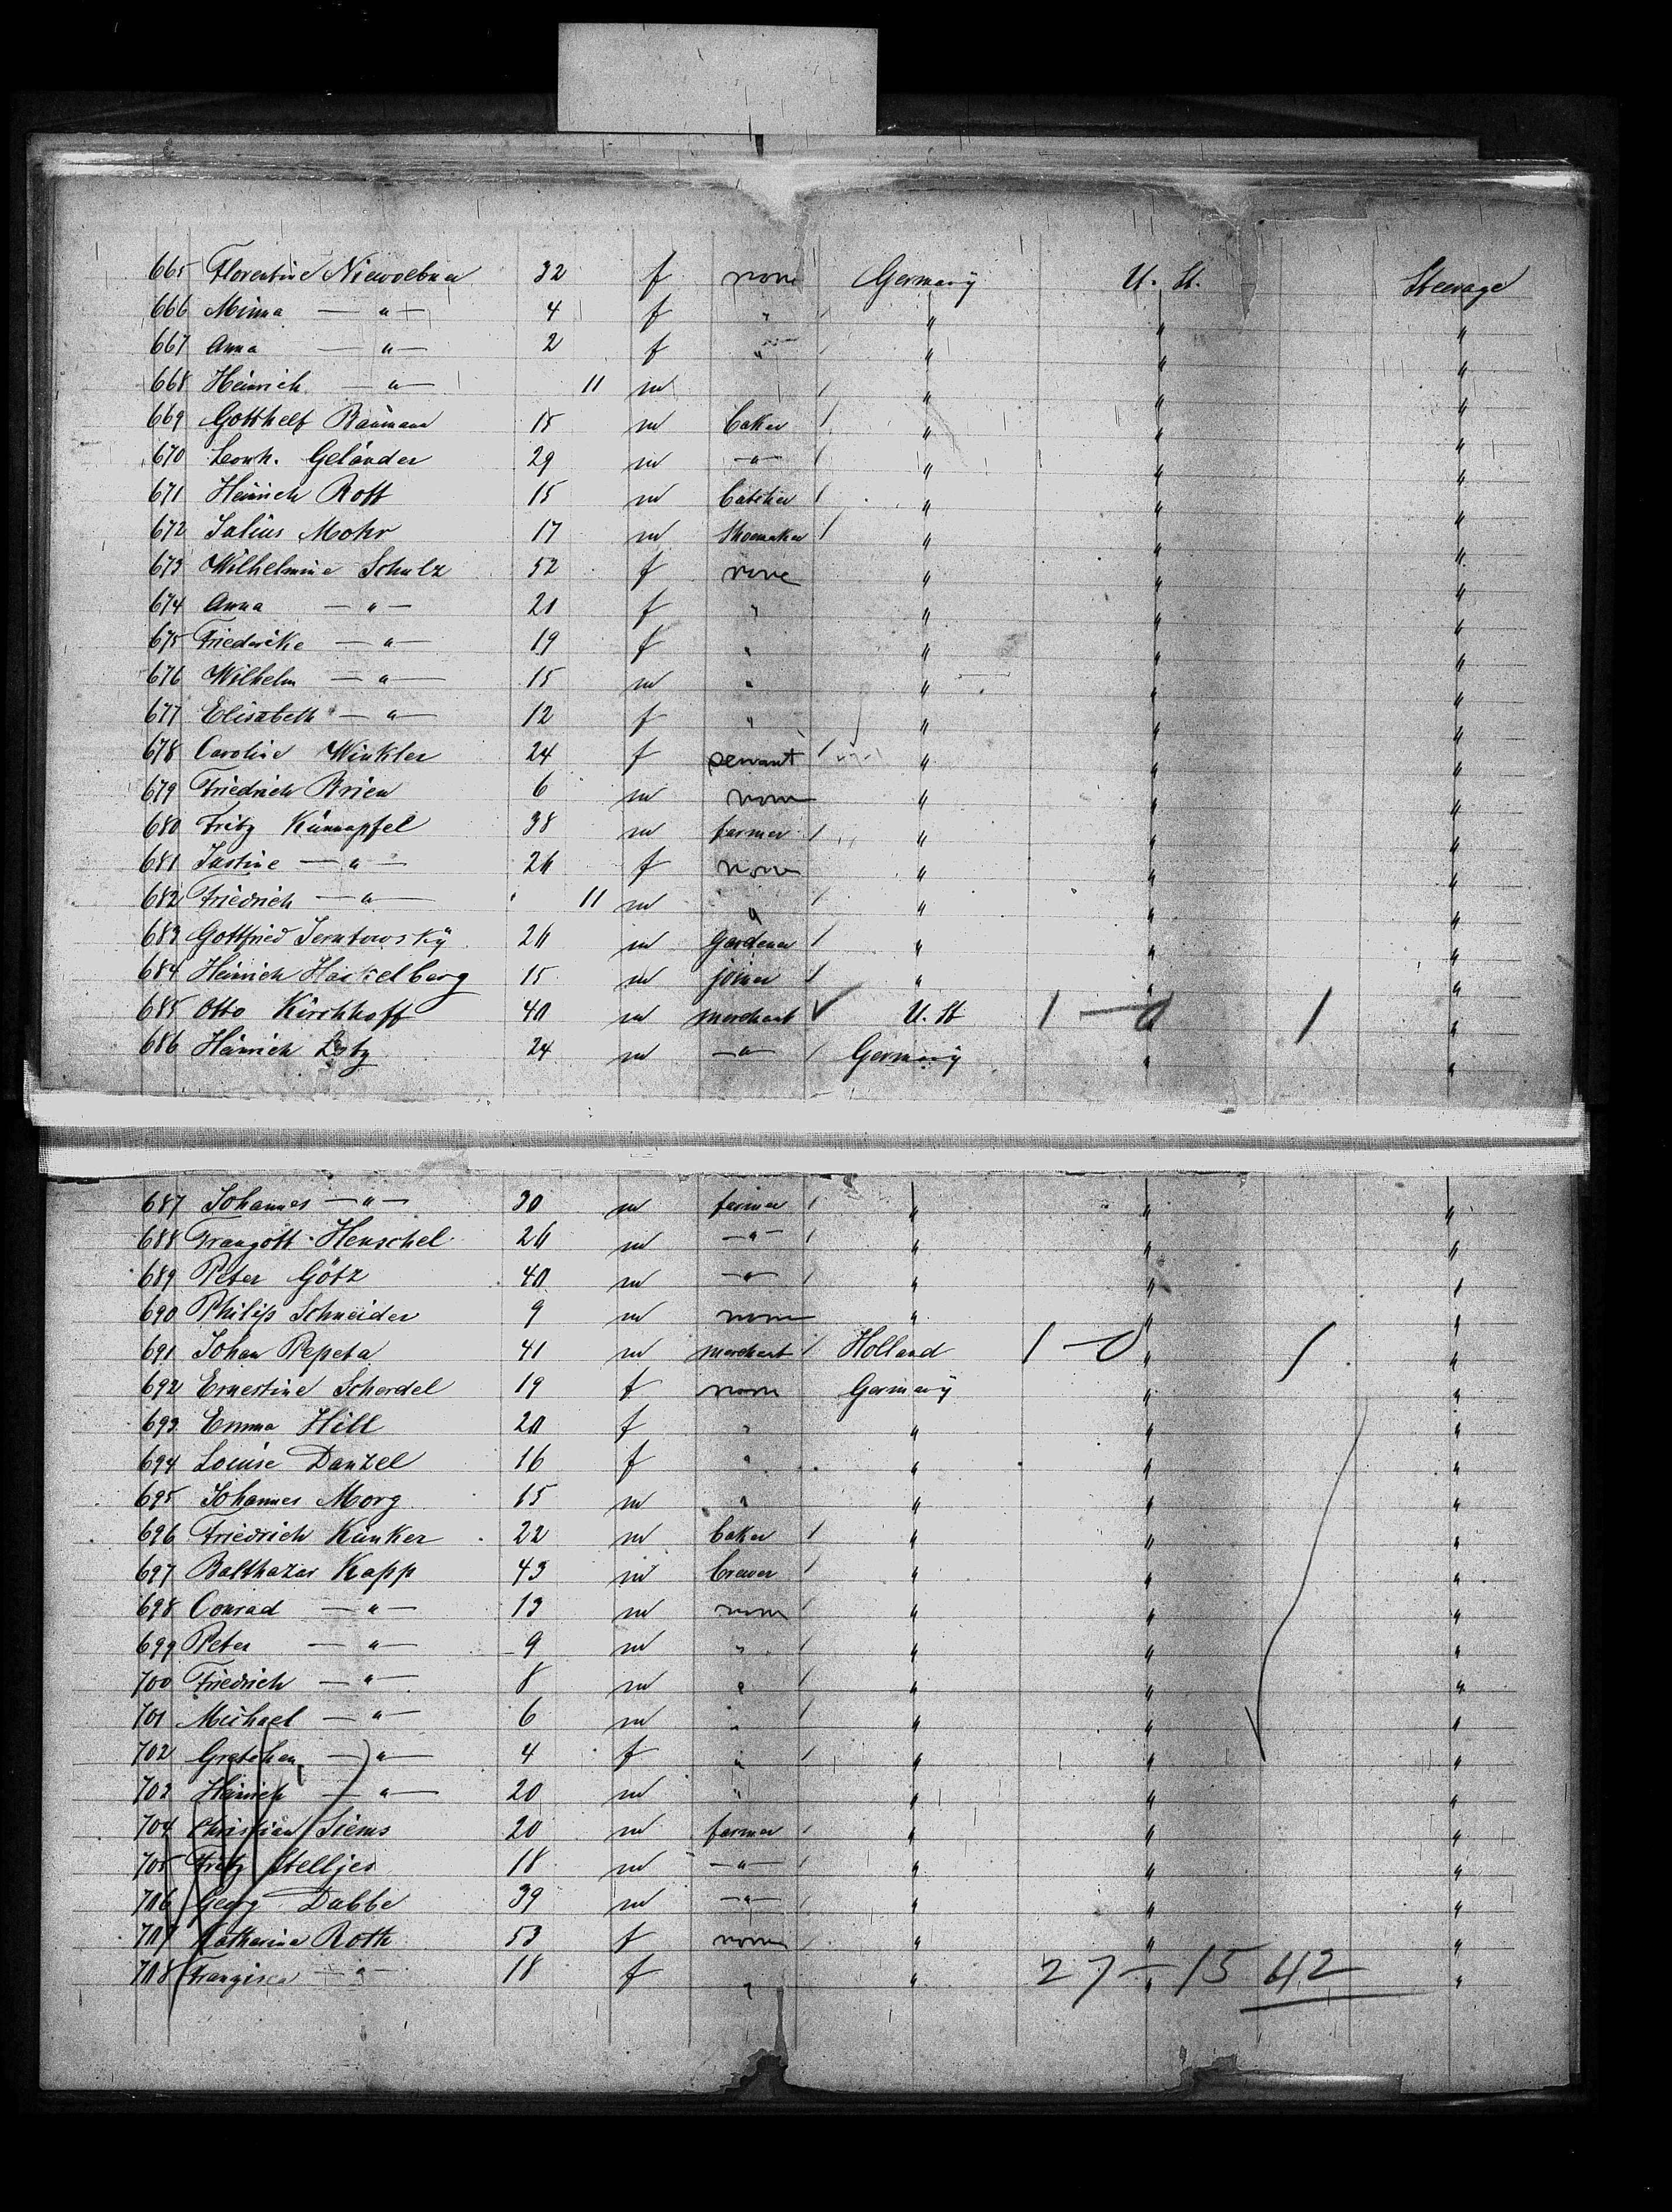 665 Florentine Niewoebner 32 f none Germany U. St. Steerage
666 Minna — " — 4 f " " " "
667 Anna — " — 2 f " " " "
668 Heinrich — " — 11 m " " "
669 Gotthelf Baumann 15 m baker " " "
670 Leonh. Geländer 29 m — " — " " "
671 Heinrich Rott 15 m butcher " " "
672 Julius Mohr 17 m Shoemaker " " "
673 Wilhelmine Schulz 52 f none " " "
674 Anna — " — 20 f " " " "
675 Friederike — " — 19 f " " " "
676 Wilhelm — " — 15 m " " " "
677 Elisabeth — " — 12 f " " " "
678 Caroline Winkler 24 f servant " " "
679 Friedrich Brien 6 m none " " "
680 Fritz Künnapfel 38 m farmer " " "
681 Justine — " — 26 f none " " "
682 Friedrich — " — 11 m " " " "
683 Gottfried 26 m gardener " " "
684 Heinrich Hackelberg 15 m joiner " " "
685 Otto Kirchhoff 40 m merchant U. St 1 — 0 " 1 "
686 Heinrich 24 m — " — Germany " "
687 Johannes — " — 30 m farmer " " "
688 Traugott Henschel 26 m — " — " " "
689 Peter Götz 40 m — " — " " "
690 Philip Schneider 9 m none " " "
691 Johan Pepeta 41 m merchant Holland 1 — 0 " 1 "
692 Ernestine Scherdel 19 f none Germany " "
693 Emma Hill 20 f " " " "
694 Louise Danzel 16 f " " " "
695 Johannes Morg 15 m " " " "
696 Friedrich Künker 22 m baker " " "
697 Balthazar Kapp 43 m brewer " " "
698 Conrad — " — 13 m none " " "
699 Peter — " — 9 m " " " "
700 Friedrich — " — 8 m " " " "
701 Michael — " — 6 m " " " "
702 Gretchen — " — 4 f " " " "
703 Heinrich — " — 20 m " " " "
704 Christian Siems 20 m farmer " " "
705 Fritz Stelljes 18 m — " — " " "
706 Georg Dubbe 39 m — " — " " "
707 Katharina Roth 53 f none " " "
708 Franzisca — " — 18 f " " " "
27 — 15 42